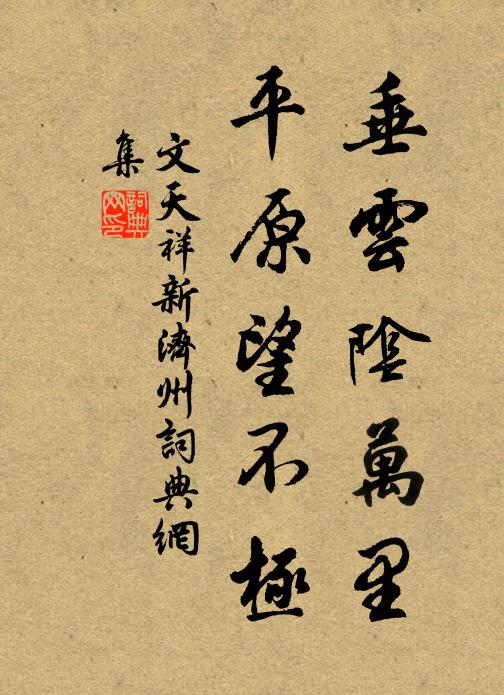 垂雲陰萬里
平原望不極
文天祥新濟州詞典網
集
詞典
网印